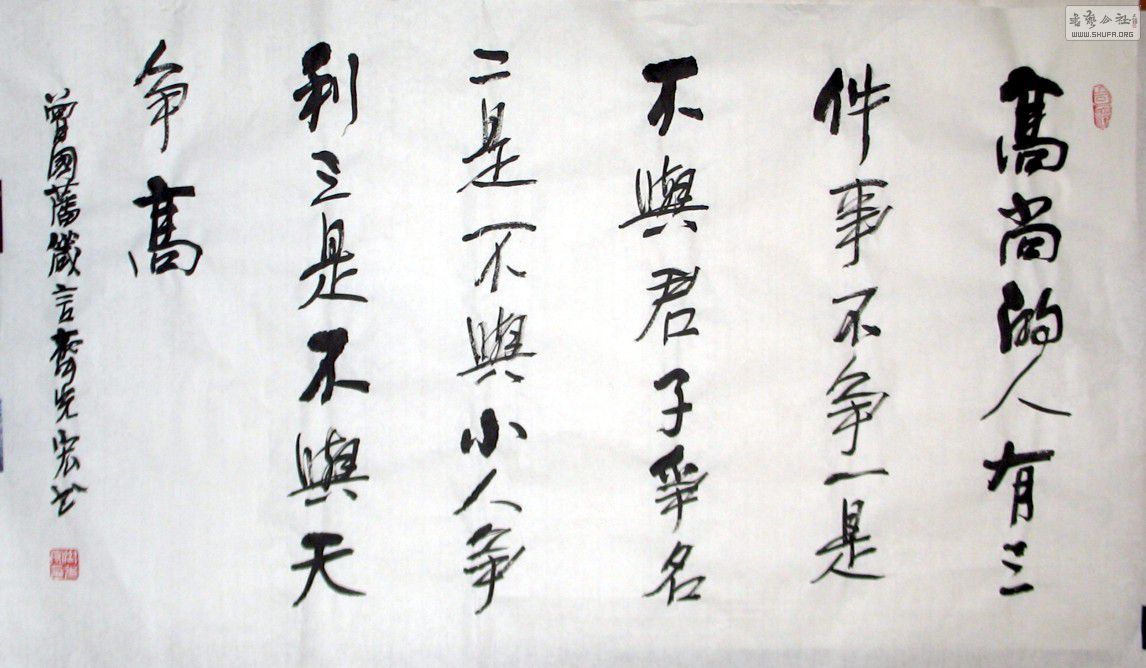 高尚的人有三
件事不争一是
不與君子争名
二是不與小人争
利三是不與天
争高
曾國藩箴言齊光宏书
WWW.SHUFA.ORG